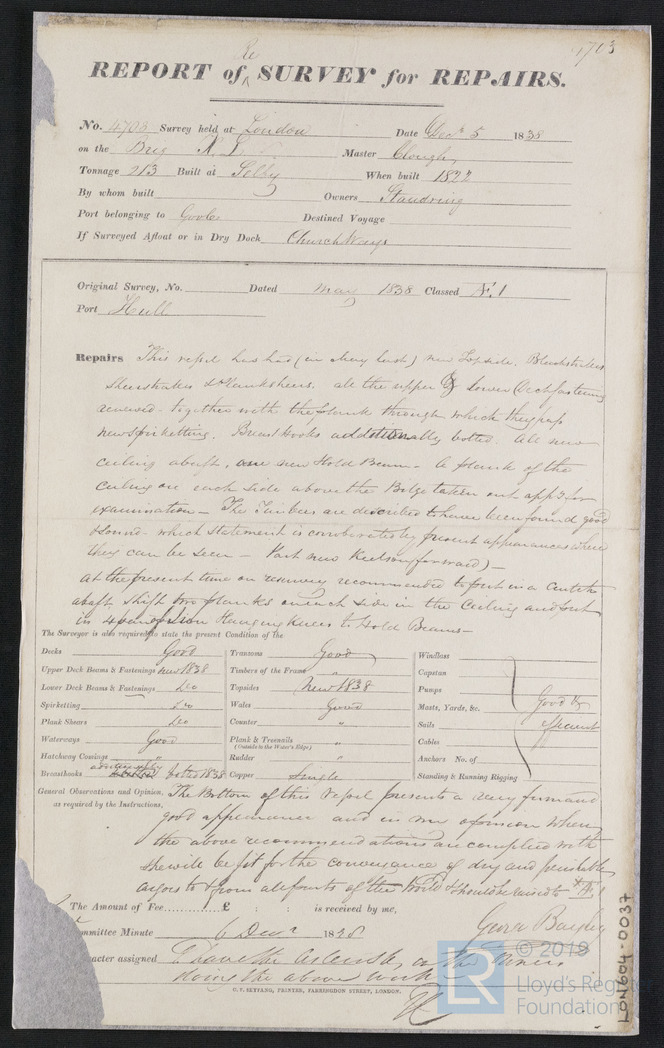 1703
Re
REPORT of SURVEY for REPAIRS.
No. 4703 Survey held at London Date Decr 5 1838
on the Brig Master Clough
Tonnage 213 Built at Selby When built 1822
By whom built Owners Standring
Port belonging to Goole Destined Voyage
If Surveyed Afloat or in Dry Dock Church Ways
Original Survey, No. Dated May 1838 Classed Æ 1
Port Hull
Repairs This vessel has had (in May last) new Topside, Blackstrakes
Sheerstrakes & Planksheers. all the upper & lower Deck fastening
renewed. together with the plank through which they pass
new spirketting. Breast Hooks additionally bolted. All new
ceiling abaft, one new Hold Beam. A plank of the
ceiling on each side above the Bilge taken out for
examination – The Timbers are described to have been found good
& sound. which statement is corroborated by present appearances where
they can be seen – Part new Keelson forward) –
At the present time on recommended to put in a
abaft, shift two planks on each side in the Ceiling and put
in Iron Hanging Knees to Hold Beams –
The Surveyor is also required to state the present Condition of the
Decks Good Transoms Good Windlass
Upper Deck Beams & Fastenings new 1838 Timbers of the Frame " Capstan
Lower Deck Beams & Fastenings Do Topsides New 1838 Pumps
Spirketting Do Wales Good Masts, Yards, &c. Good &
Plank Shears Do Counter " Sails efficient
Waterways Good Plank & Treenails " Cables
(Outside to the Water's Edge)
Hatchway Coamings " Rudder " Anchors No. of
additionally
Breasthooks bolted 1838 Copper Single Standing & Running Rigging
General Observations and Opinion, The Bottom of this Vessel presents a very firm and
as required by the Instructions, good appearance and in my opinion when
the above recommendations are complied with
she will be fit for the conveyance of dry and perishable
cargoes to & from all parts of the World & should be raised to *Æ 1
The Amount of Fee £ : : is received by me,
George Bayley
ommittee Minute 6 Decr 1838
racter assigned the Asterisk, on the Owners
doing the above work
C. F. SEYFANG, PRINTER, FARRINGDON STREET, LONDON.
LON604-0037
LR
© 2019
Lloyd's Register
Foundation